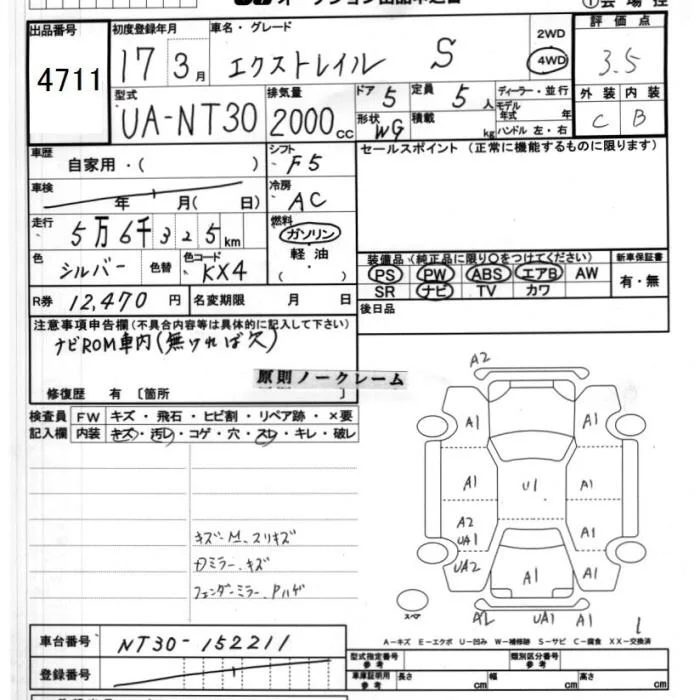 出品番号 4711
初度登録年月 17年 3月
車名・グレード エクストレイル S
2WD 4WD
評価点 3.5
外装 C 内装 B
型式 UA-NT30
排気量 2000cc
ドア 5 定員 5人
形状 WG 積載 kg
ディーラー・並行
モデル年式 年
ハンドル 左・右
車歴 自家用・( )
シフト F5
セールスポイント (正常に機能するものに限ります)
車検 年 月( 日)
冷房 AC
走行 5万6千325km
燃料 ガソリン 軽油 ( )
色 シルバー 色替 色コード KX4
装備品 (純正品に限り○をつけてください)
新車保証書 有・無
PS PW ABS エアB AW
SR ナビ TV カワ
R券 12,470円 名変期限 月 日
後日品
注意事項申告欄(不具合内容等は具体的に記入して下さい)
ナビROM車内(無ければ欠)
原則ノークレーム
修復歴 有 〔箇所
検査員記入欄
FW キズ・飛石・ヒビ割・リペア跡・×要
内装 キズ・汚レ・コゲ・穴・スレ・キレ・破レ
キズ・M.スリキズ
Dミラー.キズ
フェンダーミラー.Pハゲ
A2
A1 A1
A1 U1 A1
A2 UA1 A1
UA2 A1 A1
スペア
A2 UA1 A1
A-キズ E-エクボ U-凹み W-補修跡 S-サビ C-腐食 XX-交換済
車台番号 NT30-152211
登録番号
型式指定番号 参考 類別区分番号 参考
車庫証明用 参考 長さ cm 幅 cm 高さ cm